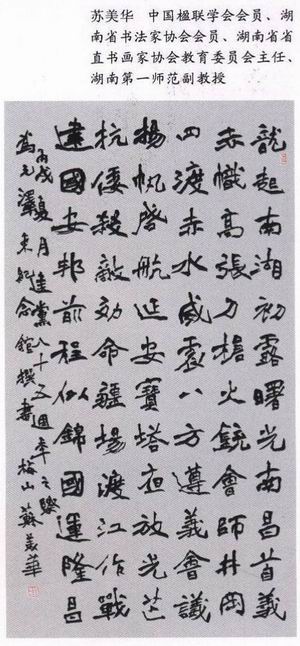 苏美华　中国楹联学会会员、湖
南省书法家协会会员、湖南省省
直书画家协会教育委员会主任、
湖南第一师范副教授
龍起南湖初露曙光南昌首義
赤幟高張刀槍火銃會師井岡
四渡赤水威震八方遵義會議
揚帆啓航延安寶塔夜放光芒
抗倭殺敵効命疆場渡江作戰
建國安邦前程似錦國運隆昌
丙戌夏月建黨八十五週年之際
爲毛澤東紀念館撰書 梅山蘇美華